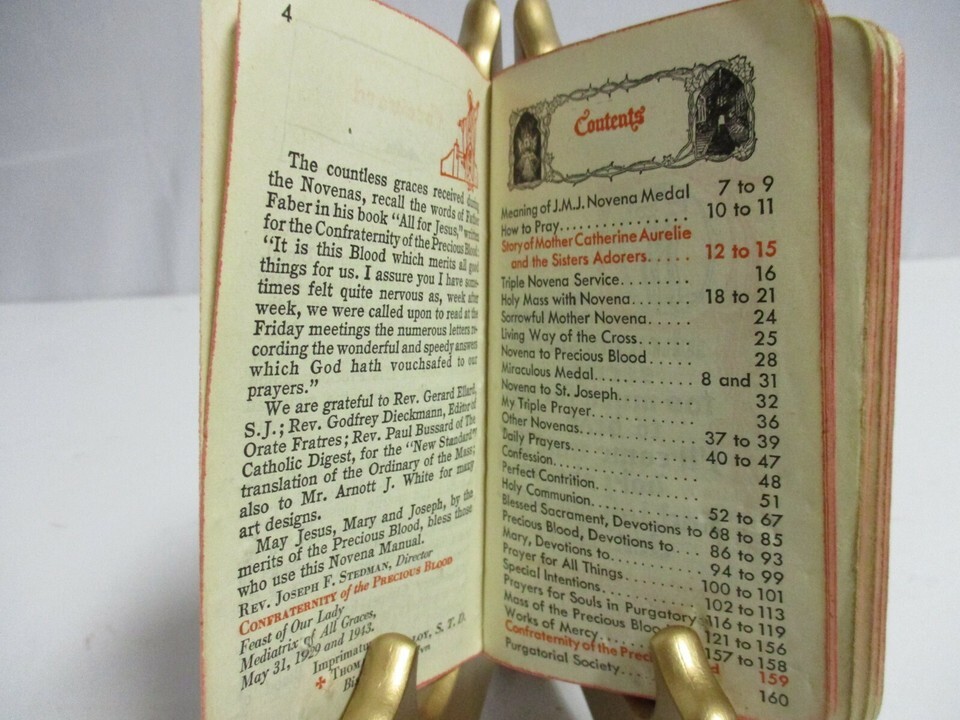 4
The countless graces received during
the Novenas, recall the words of Father
Faber in his book "All for Jesus," written
for the Confraternity of the Precious Blood:
"It is this Blood which merits all good
things for us. I assure you I have some-
times felt quite nervous as, week after
week, we were called upon to read at the
Friday meetings the numerous letters re-
cording the wonderful and speedy answers
which God hath vouchsafed to our
prayers."
We are grateful to Rev. Gerard Ellard,
S.J.; Rev. Godfrey Dieckmann, Editor of
Orate Fratres; Rev. Paul Bussard of The
Catholic Digest, for the "New Standard"
translation of the Ordinary of the Mass;
also to Mr. Arnott J. White for many
art designs.
May Jesus, Mary and Joseph, by the
merits of the Precious Blood, bless those
who use this Novena Manual.
REV. JOSEPH F. STEDMAN, Director
CONFRATERNITY of the PRECIOUS BLOOD
Feast of Our Lady
Mediatrix of All Graces,
May 31, 1929 and 1943.
S. T. D.
Contents
Meaning of J.M.J. Novena Medal 7 to 9
How to Pray............ 10 to 11
Story of Mother Catherine Aurelie
and the Sisters Adorers..... 12 to 15
Triple Novena Service........ 16
Holy Mass with Novena...... 18 to 21
Sorrowful Mother Novena..... 24
Living Way of the Cross....... 25
Novena to Precious Blood..... 28
Miraculous Medal.......... 8 and 31
Novena to St. Joseph........ 32
My Triple Prayer........... 36
Other Novenas............ 37 to 39
Daily Prayers............ 40 to 47
Confession............ 48
Perfect Contrition.......... 51
Holy Communion.......... 52 to 67
Blessed Sacrament, Devotions to 68 to 85
Precious Blood, Devotions to... 86 to 93
Mary, Devotions to......... 94 to 99
Prayer for All Things........ 100 to 101
Special Intentions.......... 102 to 113
Prayers for Souls in Purgatory 116 to 119
Mass of the Precious 121 to 156
Works of Mercy...... 157 to 158
Confraternity of the 159
Purgatorial Society.... 160